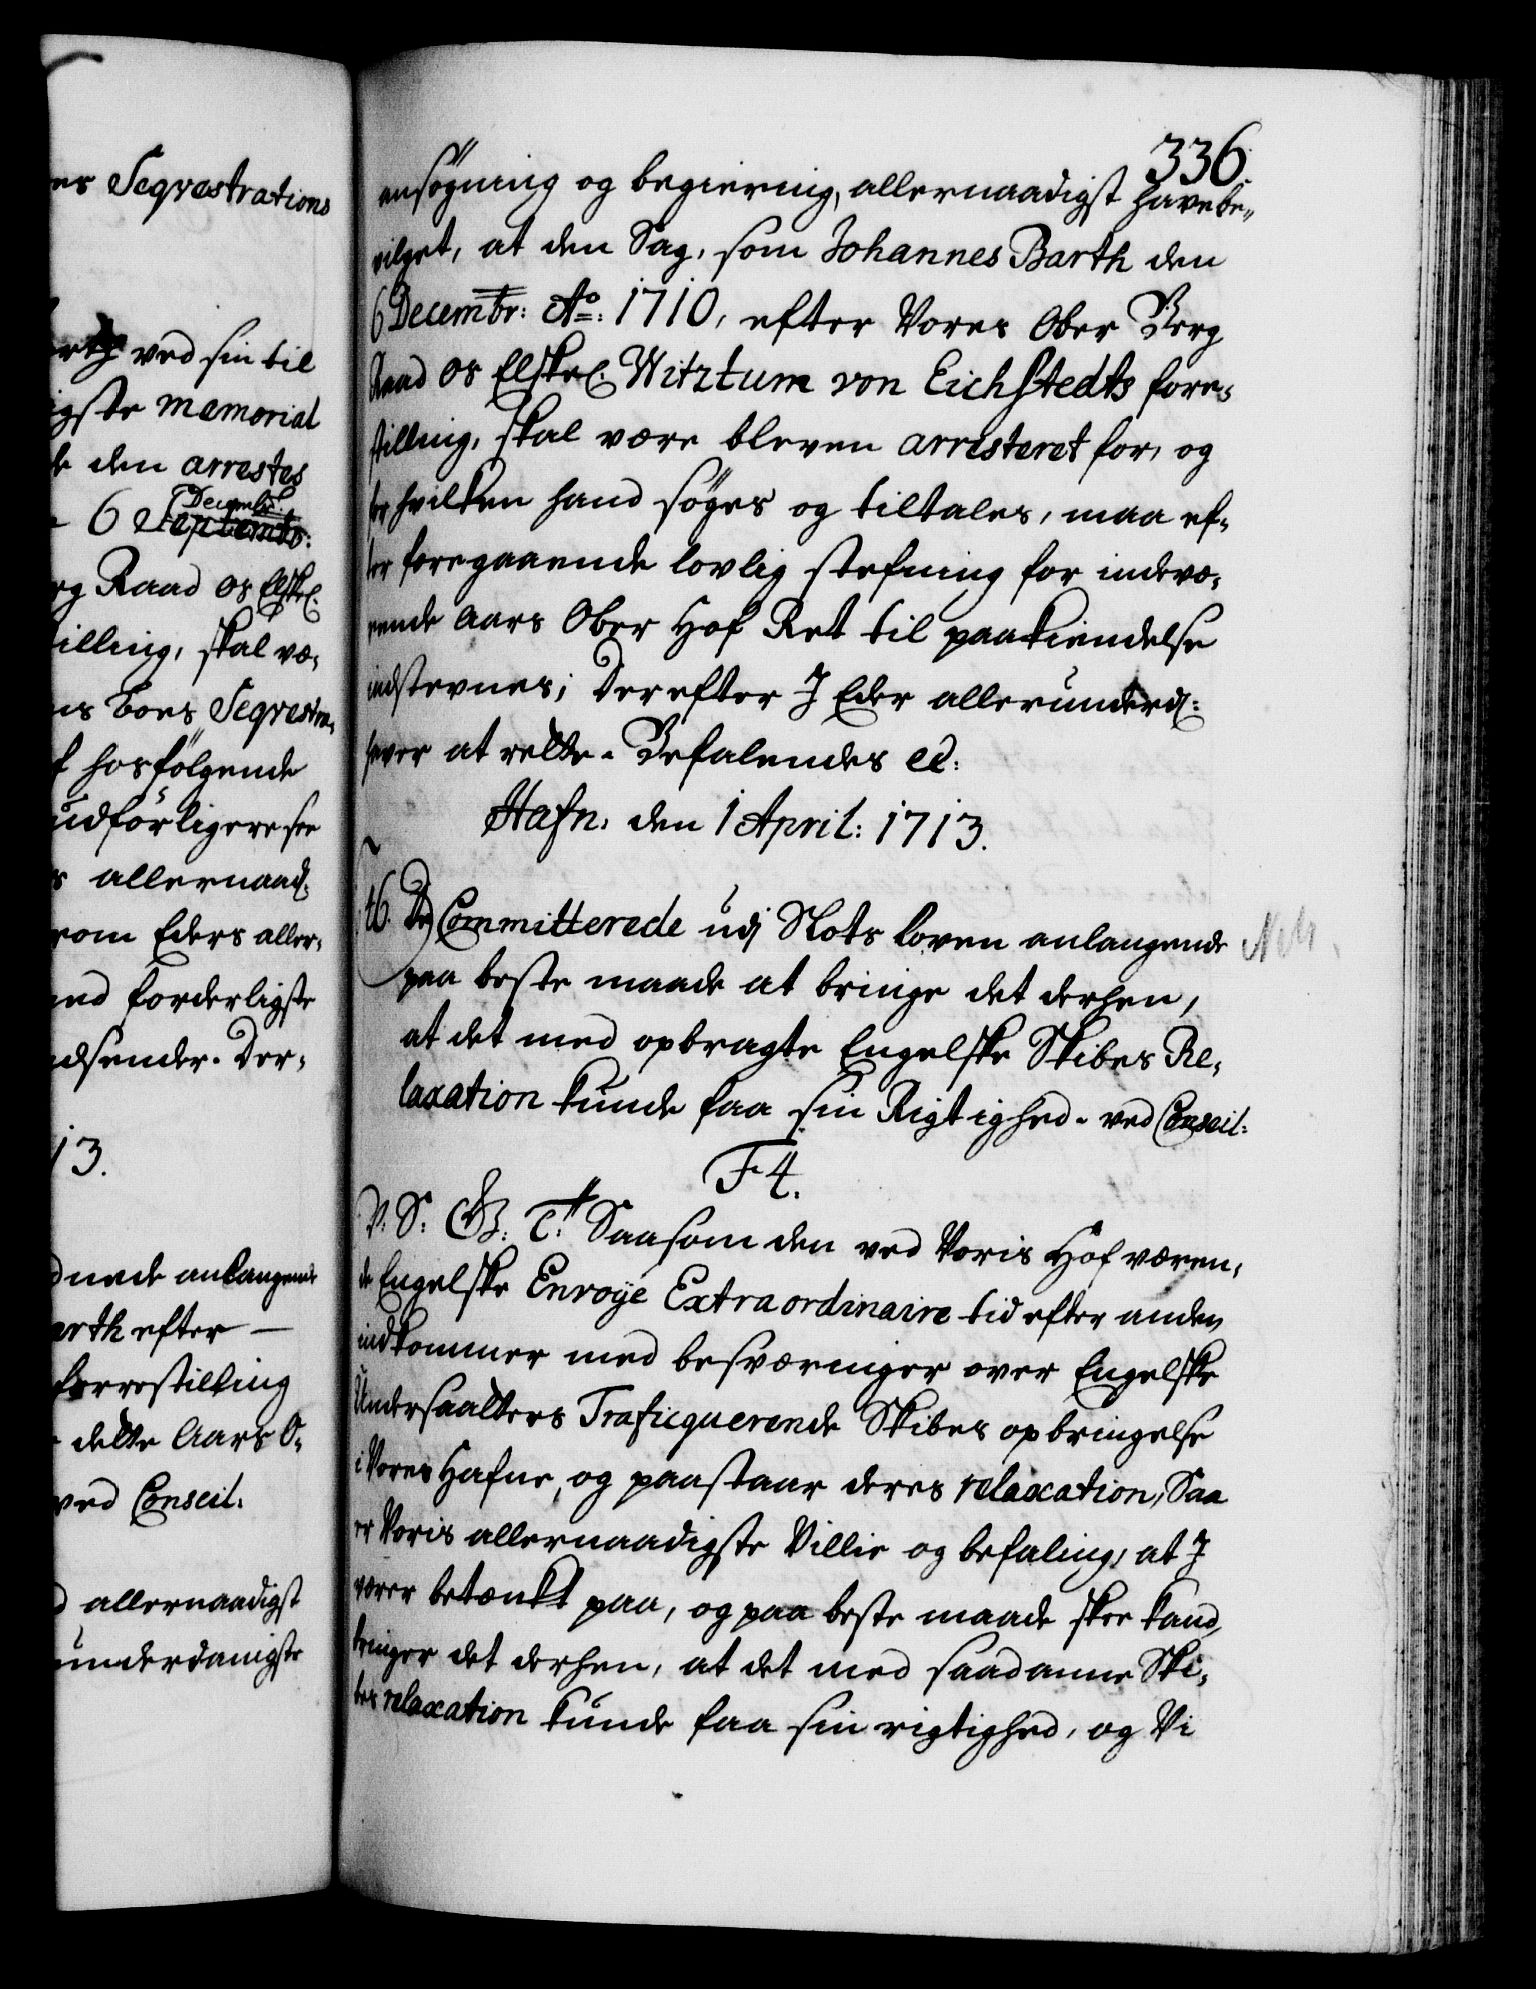 es Seqvestrations
ved sin til
igste memorial
den arrestes
Decembr:
6 Septembr:
rg Raad os Elskel:
illing, skal væ¬
is boes Seqvestra¬
f hosfølgende
udførligere see
s allernaad:
som Eders aller¬
med forderligste
dsender. Der¬
13.
dnede anlangende
arth efter —
forrestilling
dette Aars O¬
ved Conseil.
d allernaadigst
underdanigste
336.
ansøgning og begiering, allernaadigst have be¬
vilget, at den Sag, som Johannes Barth den
6 Decembr: Ao: 1710, efter Vores Ober Berg
Raad os Elskel: Witztum von Eichstedts fore¬
stilling, skal være bleven arresteret for, og
for hvilken hand søges og tiltales, maa ef¬
ter foregaaende lovlig stefning for indevæ¬
rende Aars Ober Hof Ret til paakiendelse
indstevnes; Derefter I Eder allerunderd:
haver at rette. Befalendes etc:
Hafn. den 1 April: 1713.
46. De Committerede udj Slots loven anlangende
paa beste maade at bringe det derhen,
at det med opbragte Engelske Skibes Re¬
laxation kunde faa sin Rigtighed. ved Conseil:
F 4.
V. S. G. T. Saasom den ved Voris Hof væren¬
de Engelske Envoyé Extraordinaire tid efter anden
indkommer med besværinger over Engelske
Undersaatters Traficquerende Skibes opbringelse
i Vores Hafne, og paastaar deres relaxation; Saa
er Voris allernaadigste Villie og befaling, at I
værer betænkt paa, og paa beste maade skee kand,
bringer det derhen, at det med saadanne Ski¬
bes relaxation kunde faa sin rigtighed, og Vi